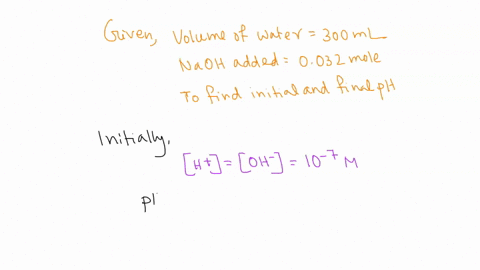 Given, Volume of water = 300 mL
NaOH added = 0.032 mole
To find initial and final pH
Initially,
[H+] = [OH-] = 10-7 M